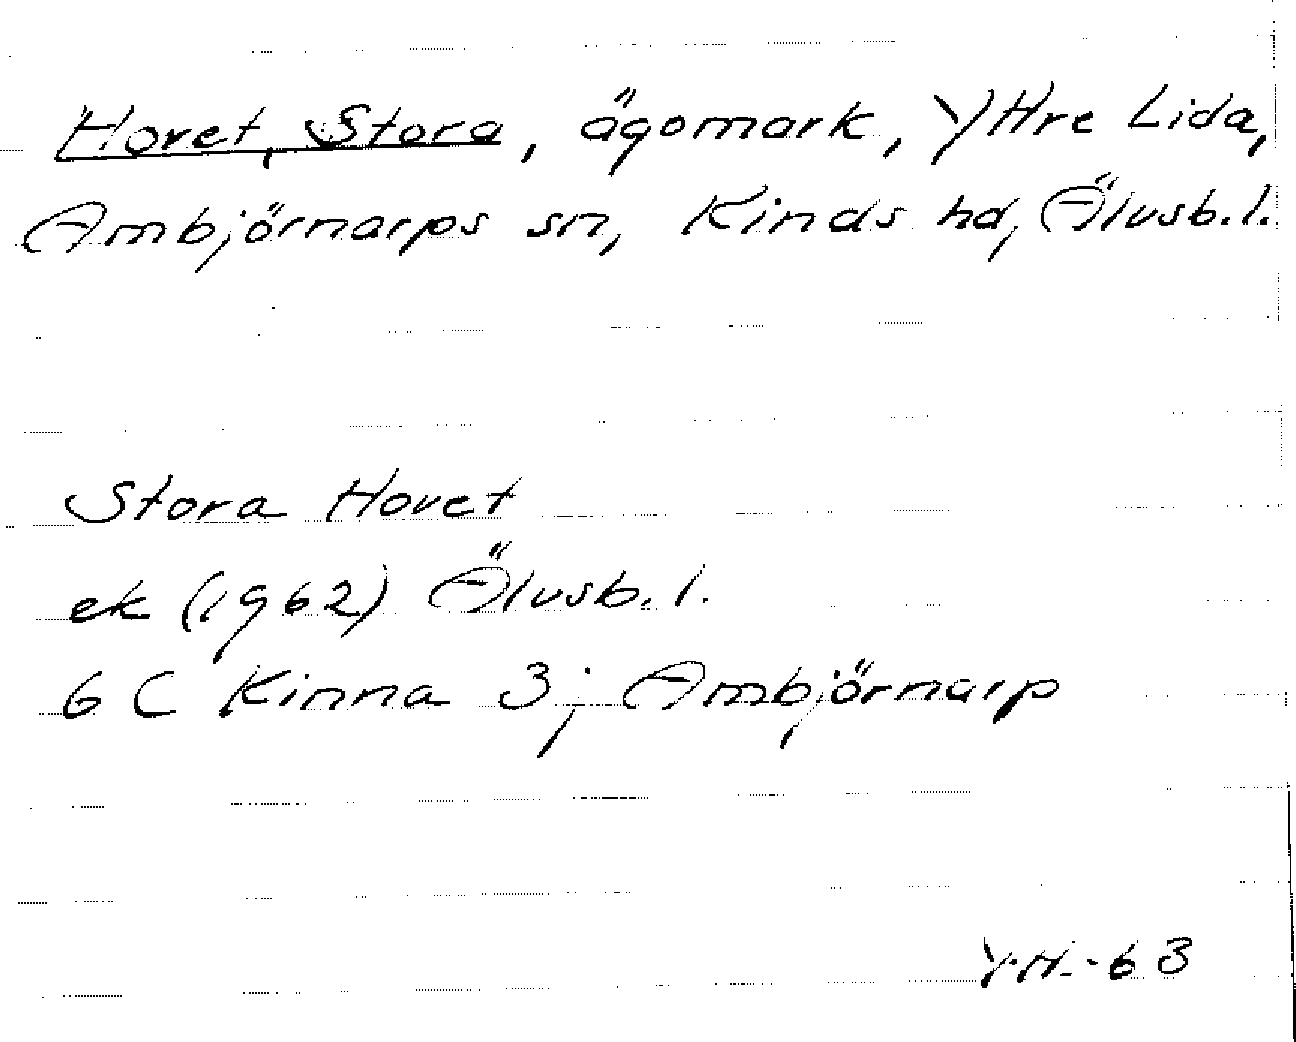 Hovet, Stora, ägomark, Yttre Lida,
Ambjörnarps sn, Kinds hd, Älvsb. l.
Stora Hovet
ek (1962) Älvsb. l.
6 C Kinna 3j Ambjörnarp
Y.H.-63